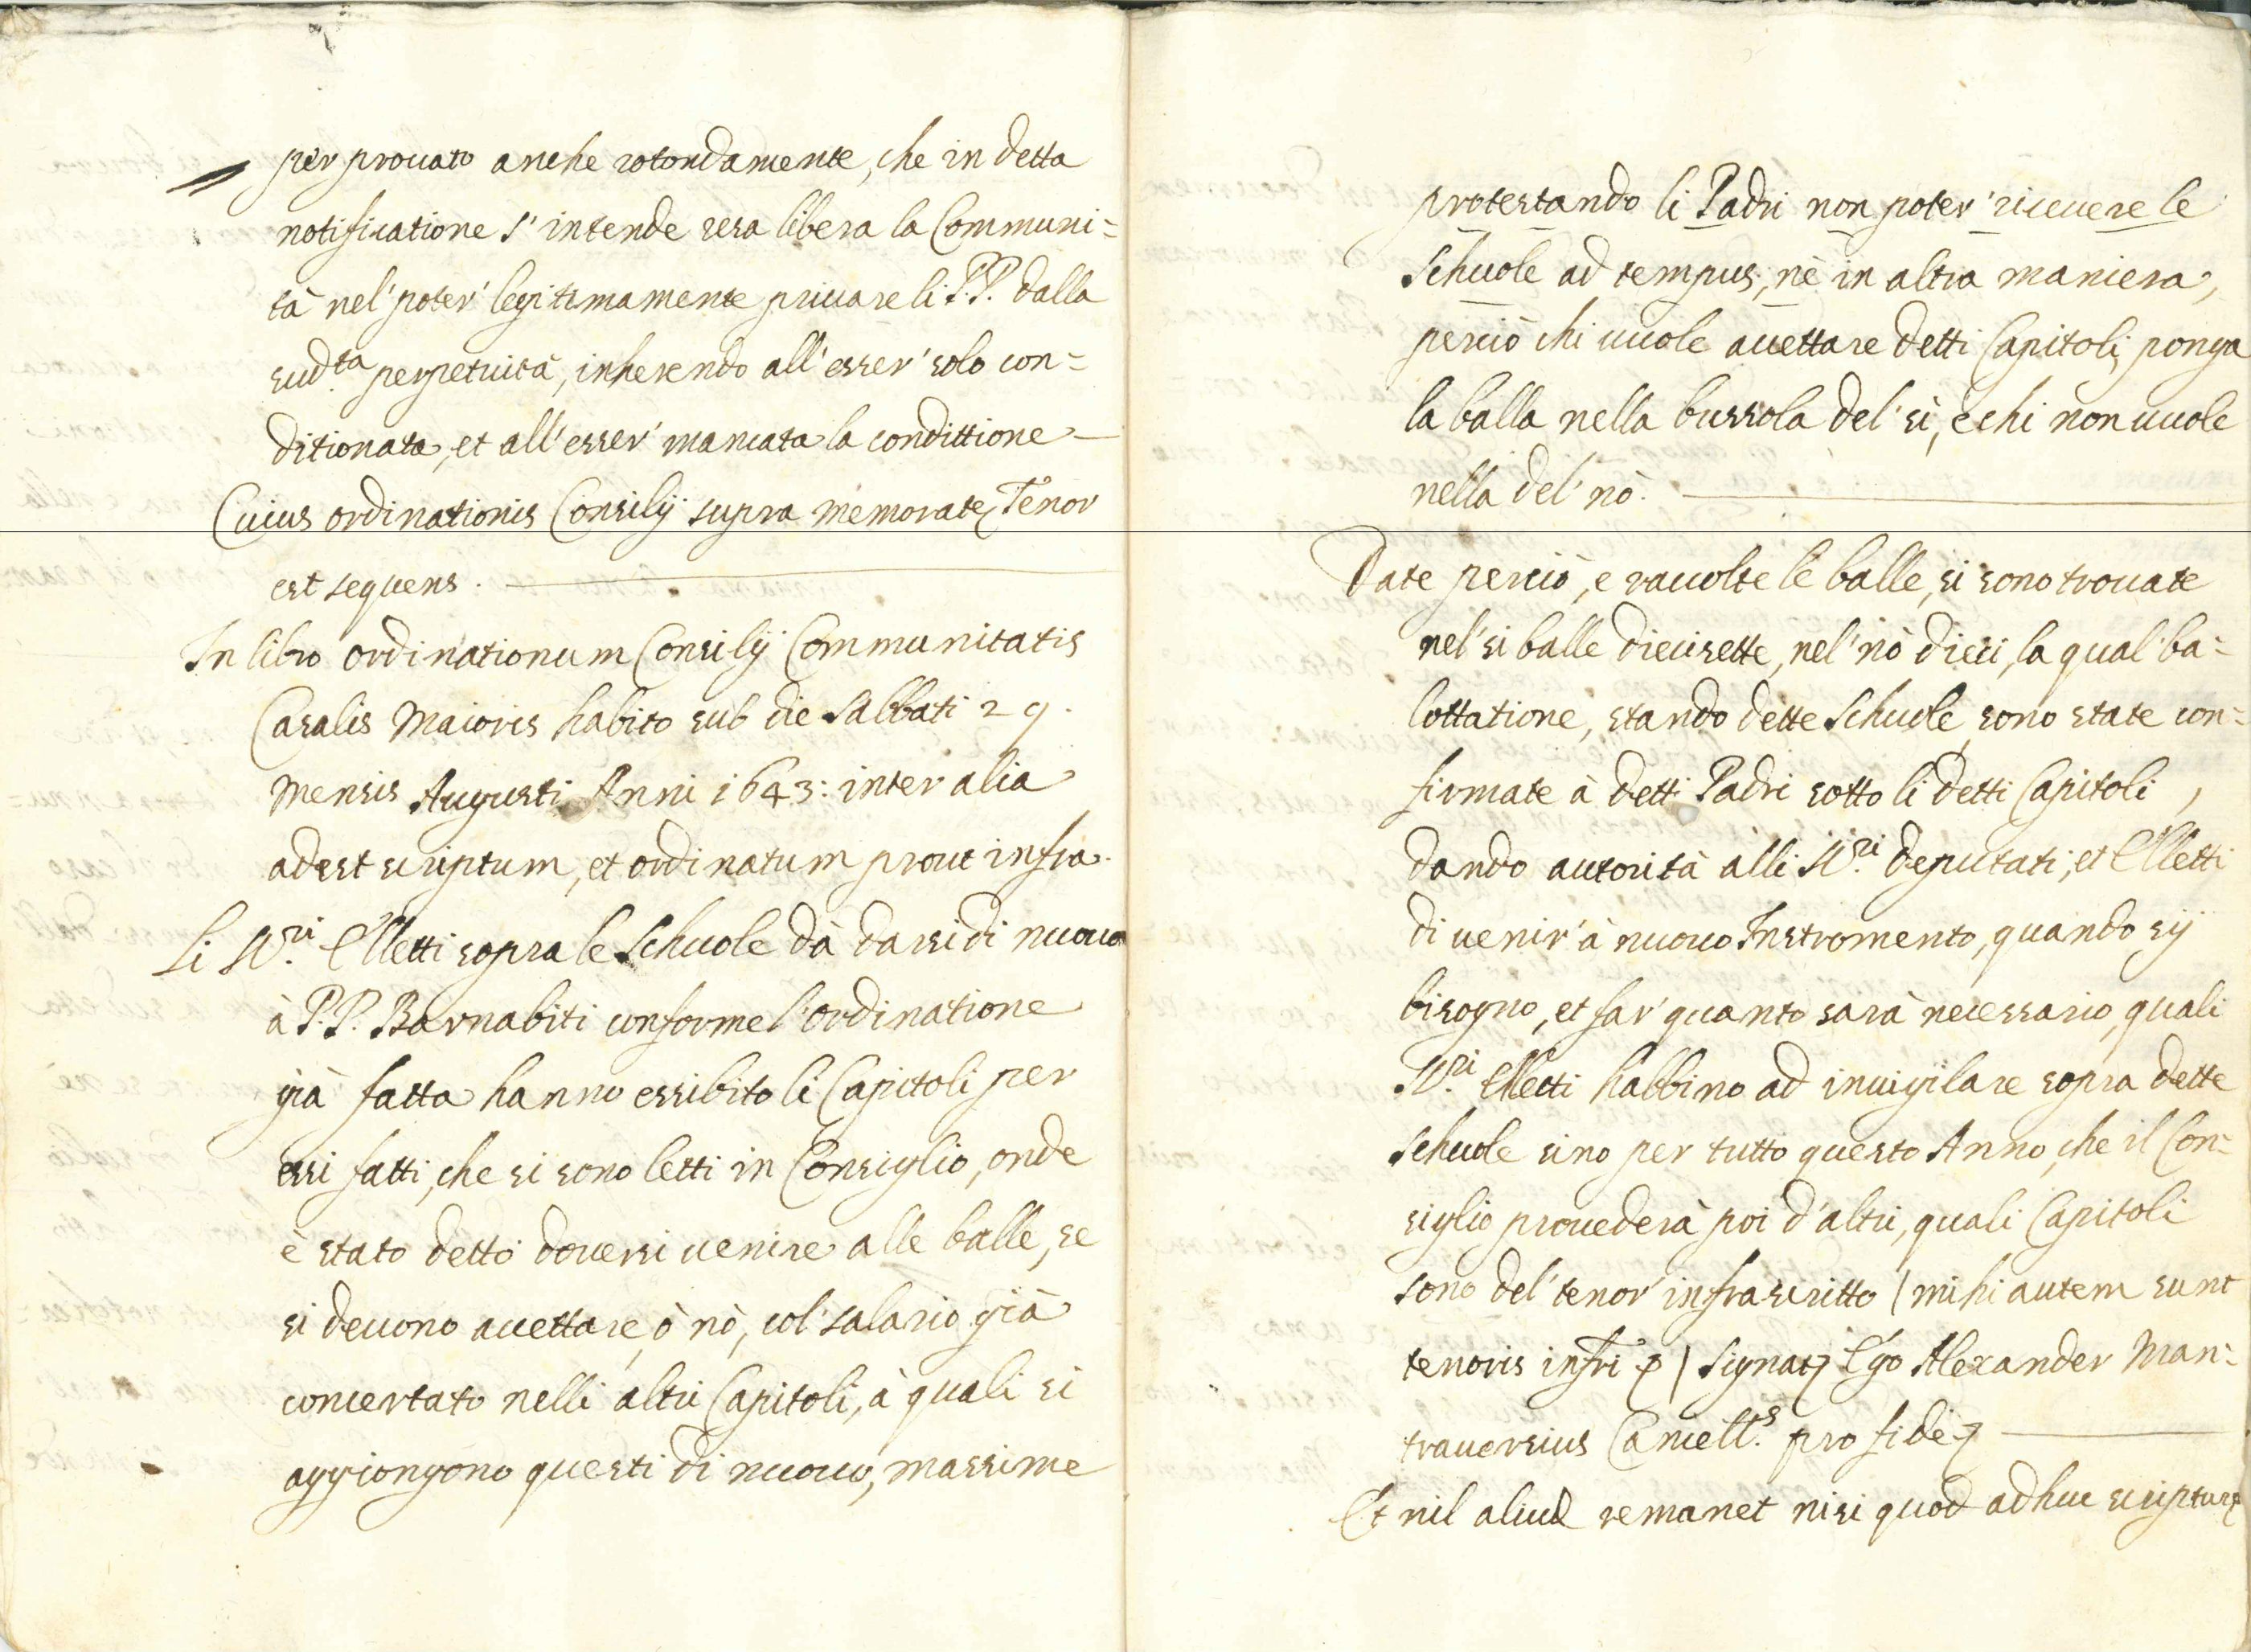 per prouato anche rotondamente, che in detta
notificatione s' intende resa libera la Communi=
tà nel' poter' legitimamente priuare li P.P. dalla
sud.ta perpetuità, inherendo all' esser' solo con=
ditionata, et all' esser' mancata la condittione
Cuius ordinationis Consilij supra memorate Tenor
est sequens.
In libro ordinationum Consilij Communitatis
Casalis Maioris habito sub die Sabbati 29.
Mensis Augusti Anni 1643: inter alia
adest scriptum, et ordinatum prout infra.
Li SS.ri Elletti sopra le Schuole dà darsi di nuouo
à P.P. Barnabiti conforme l'ordinatione
già fatta hanno essibito li Capitoli per
essi fatti, che si sono letti in Consiglio, onde
è stato detto douersi uenire alle balle, se
si deuono accettare, ò nò, col' salario già
concertato nelli altri Capitoli, à quali si
aggiongono questi di nuouo, massime
protestando li Padri non poter' riceuere le
Schuole ad tempus, nè in altra maniera,
perciò chi uuole accettare detti Capitoli, ponga
la balla nella bussola del' sì, e chi non uuole
nella del' nò.
Date perciò, e raccolte le balle, si sono trouate
nel' si balle diecisette, nel' nò dieci, la qual' ba=
lottatione, stando dette Schuole sono state con=
firmate à detti Padri sotto li detti Capitoli,
dando autorità alli SS.ri deputati, et Elletti
di uenir' à nuouo Instromento, quando sij
bisogno, et far' quanto sarà necessario, quali
SS.ri Elletti habbino ad inuigilare sopra dette
Schuole sino per tutto questo Anno, che il Con=
siglio prouederà poi d'altri, quali Capitoli
sono del' tenor' infrascritto / mihi autem sunt
tenoris infri / Signat Ego Alexander Man=
trauersius Cancell.s pro fide
Et nil aliud remanet nisi quod adhuc scripture